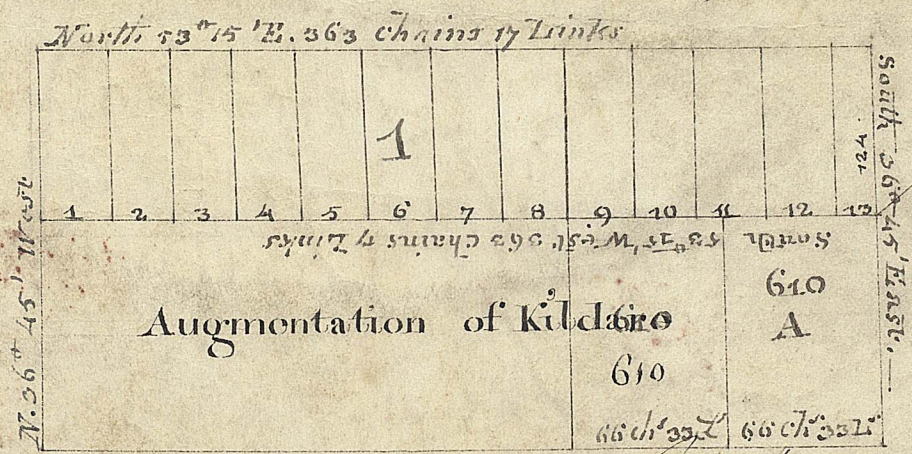 North 53° 15' E. 363 Chains 17 Links
South 36° 45' East.
N. 36° 45' West
1
124
1 2 3 4 5 6 7 8 9 10 11 12 13
South 53° 15' West 363 Chains 17 Links
610
A
Augmentation of Kildare
610
610
66 Chs 33 L
66 Chs 33 Ls